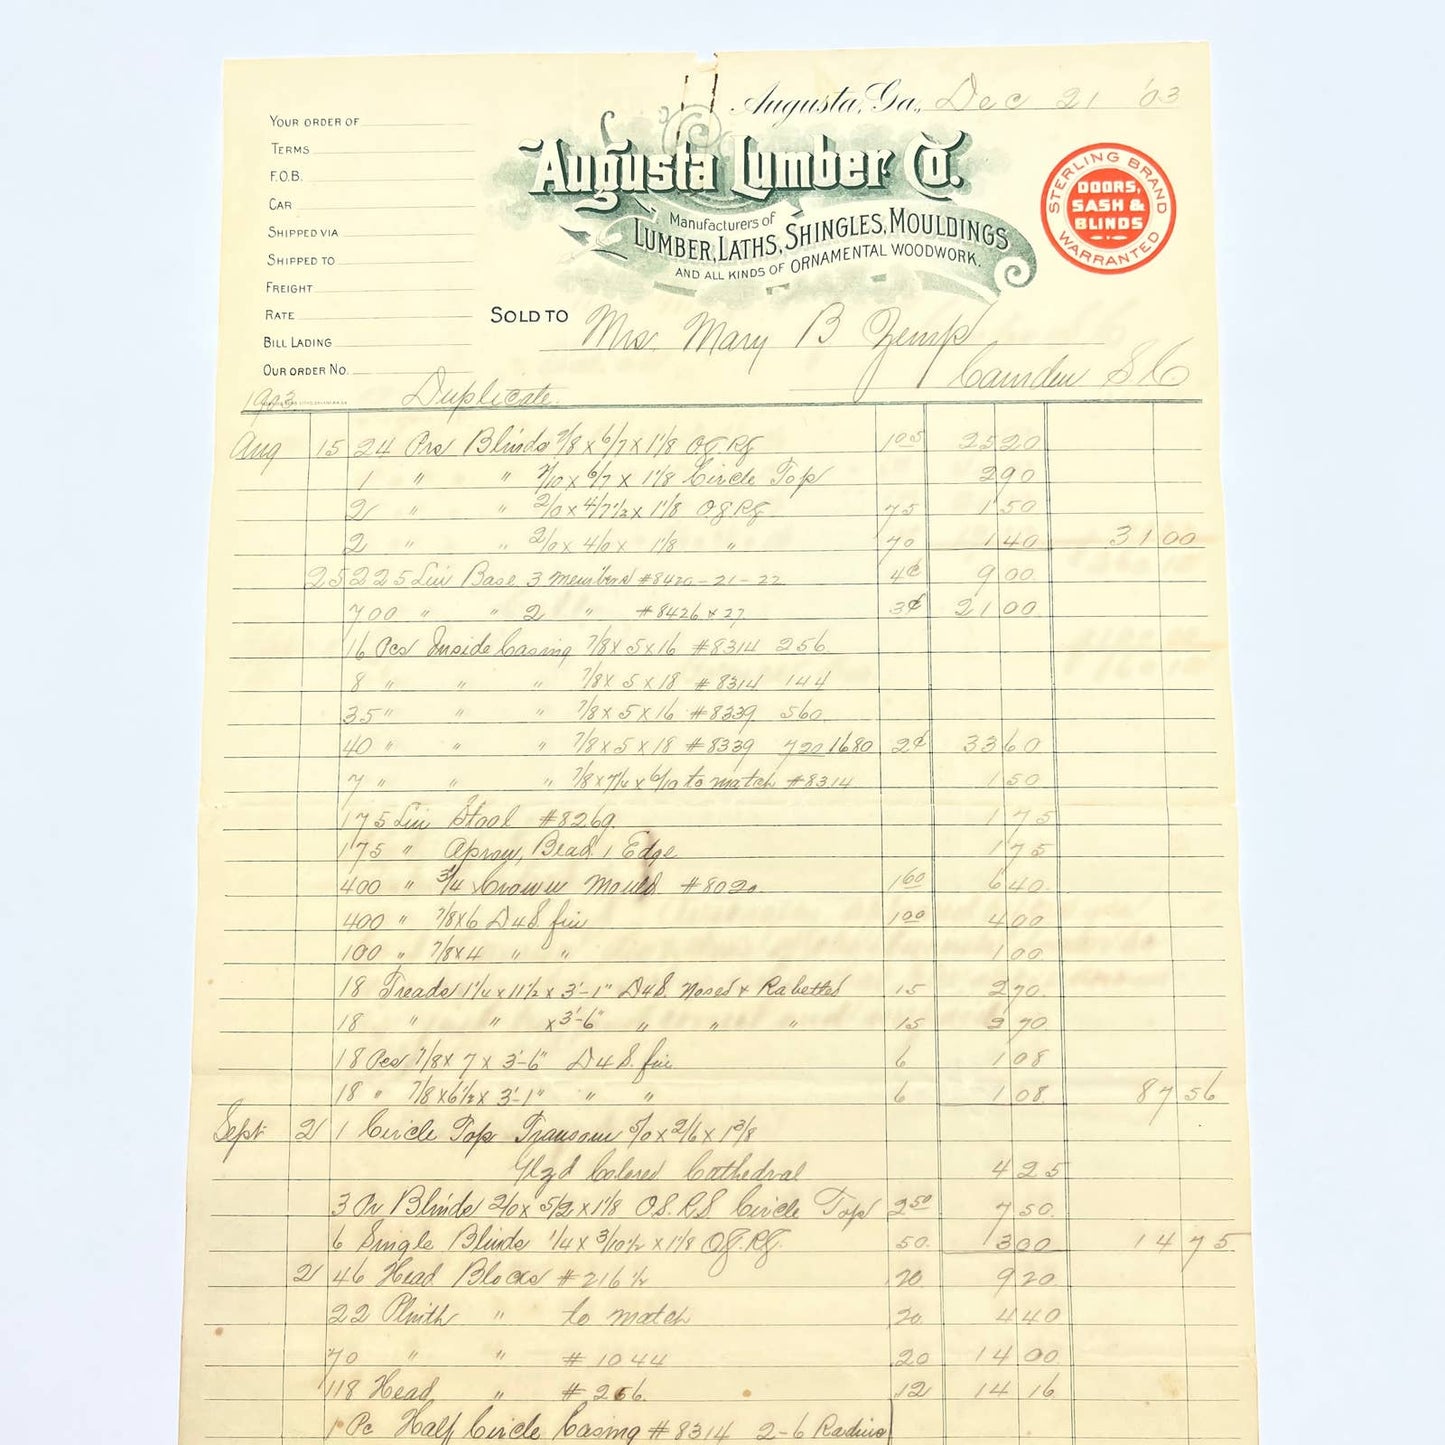 Augusta, Ga., Dec 21 '03
YOUR ORDER OF
TERMS
F.O.B.
CAR
SHIPPED VIA
SHIPPED TO
FREIGHT
RATE
BILL LADING
OUR ORDER No.
Augusta Lumber Co.
Manufacturers of
LUMBER, LATHS, SHINGLES, MOULDINGS
AND ALL KINDS OF ORNAMENTAL WOODWORK.
STERLING BRAND
DOORS,
SASH &
BLINDS
WARRANTED
SOLD TO Mrs. Mary B Zemp
Camden S C
1903 Duplicate.
Aug 15 24 Prs Blinds 2/8 x 6/7 x 1 1/8 O.G.R.G. 1 05 25 20
1 " " 2/10 x 6/7 x 1 1/8 Circle Top 2 90
2 " " 2/0 x 4/7 1/2 x 1 1/8 O.G.R.G. 75 1 50
2 " " 2/0 x 4/0 x 1 1/8 " 70 1 40 31 00
25 225 Lin Base 3 members #8420-21-22 4¢ 9 00
700 " " 2 " #8426 x 27 3¢ 21 00
16 Pcs Inside Casing 7/8 x 5 x 16 #8314 256
8 " " " 7/8 x 5 x 18 #8314 144
35 " " " 7/8 x 5 x 16 #8339 560
40 " " " 7/8 x 5 x 18 #8339 720 1680 2¢ 33 60
7 " " " 7/8 x 7/4 x 6/10 to match #8314 1 50
175 Lin Stool #8269 1 75
175 " Apron, Bead 1 Edge 1 75
400 " 3/4 Crown Mould #8020 1 60 6 40
400 " 7/8 x 6 D4S. fin 1 00 4 00
100 " 7/8 x 4 " " 1 00
18 Treads 1 1/4 x 11 1/2 x 3'-1" D4S. Nosed & Rabetted 15 2 70
18 " " x 3'-6" " " " 15 2 70
18 Pcs 7/8 x 7 x 3'-6" D4S. fin 6 1 08
18 " 7/8 x 6 1/2 x 3'-1" " " 6 1 08 87 56
Sept 2 1 Circle Top Transom 5/0 x 2/6 x 1 3/8
Glzd Colored Cathedral 4 25
3 Pr Blinds 2/0 x 5/2 x 1 1/8 O.S.R.S. Circle Top 2 50 7 50
6 Single Blinds 1/4 x 3/10 1/2 x 1 1/8 O.G.R.G. 50 3 00 14 75
2 46 Head Blocks #216 1/2 20 9 20
22 Plinth " to match 20 4 40
70 " " #1044 20 14 00
118 Head " #256 12 14 16
1 Pc Half Circle Casing #8314 2-6 Radius